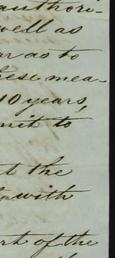 authori-
well as
far as to
these mea-
10 years,
mit to
t the
with
rt of the